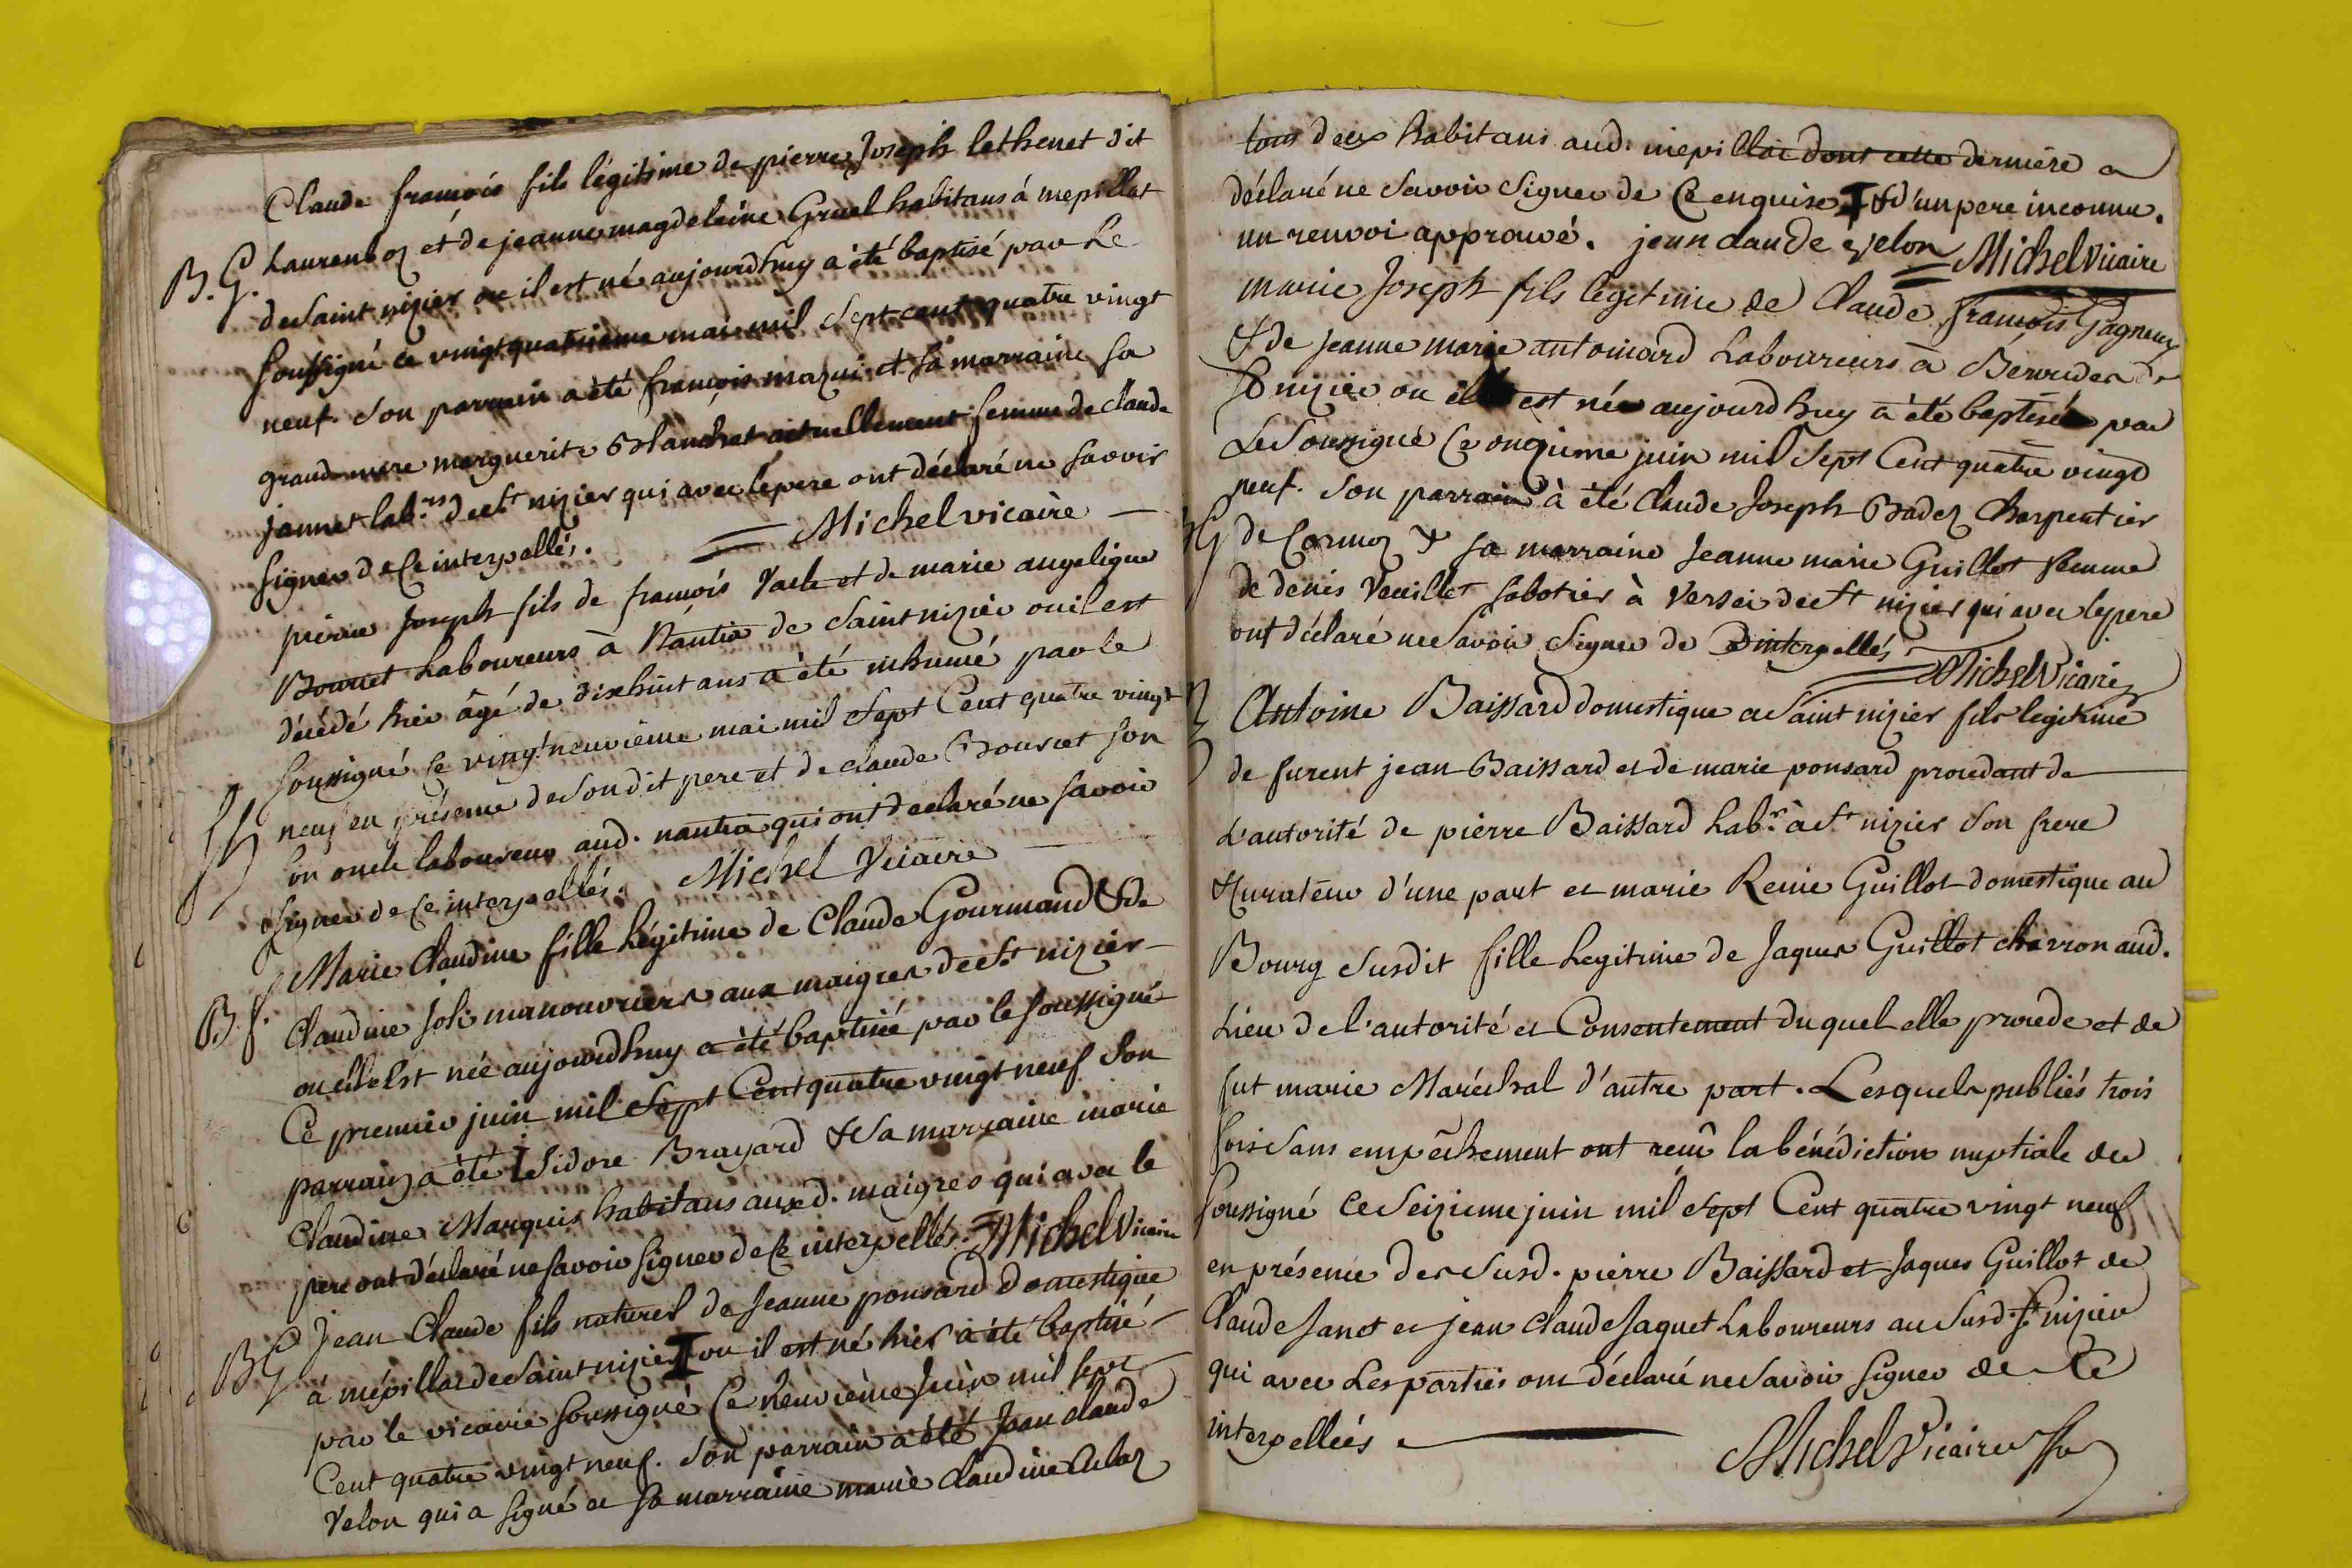 Claude françois fils légitime de pierre Joseph lethenet dit
B. G. Laurenboz et de jeanne magdeleine Gruel habitans à mepillat
de Saint nizier ou il est né aujourdhuy a été baptisé par Le
soussigné ce vingt quatrieme mai mil Sept cent quatre vingt
neuf. Son parrain a été françois mazui et Sa marraine Sa
grand mere marguerite Blanchet actuellement femme de claude
jannet lab.rs de St nizier qui avec le pere ont déclaré ne Savoir
signer de Ce interpellés. = Michel vicaire —
pierre Joseph fils de françois Vacle et de marie angelique
Bouret Laboureurs à Nantia de Saint nizier ou il est
décédé hier âgé de dixhuit ans a été inhumé par le
soussigné Ce vingt neuvieme mai mil Sept Cent quatre vingt
neuf en présence de Son dit pere et de claude Bouret Son
Son oncle laboureur aud. nantia qui ont declaré ne Savoir
Signer de Ce interpellés. Michel Vicaire
Marie Claudine fille Légitime de Claude Gourmand & de
B. f. Claudine Joli manouvriers aux maigres de St nizier
ou elle Est née aujourdhuy a été baptisée par le Soussigné
Ce premier juin mil Sept Cent quatre vingt neuf Son
parrain a été Isidore Brayard & Sa marraine marie
Claudine Marquis habitans auxd. maigres qui avec le
pere ont déclaré ne Savoir Signer de Ce interpellés. = Michel Vicaire
B G Jean Claude fils naturel de Jeanne ponsard Domestique
à mépillat de Saint nizier I ou il est né hier a été baptisé
par le vicaire Soussigné Ce Neuvieme Juin mil Sept
Cent quatre vingt neuf. Son parrain a été Jean claude
Velon qui a Signé et Sa marraine marie claudine
tous deux habitans aud. mepillat dont cette derniere a
déclaré ne Savoir Signer de Ce enquise I & d'un pere inconnu.
un renvoi approuvé. jean claude velon = Michel Vicaire
marie Joseph fils legitime de Claude françois Gagneux
& de jeanne marie antoinard Laboureurs à de
St nizier ou il est né aujourdhuy a été baptisé par
Le Soussigné Ce onzieme juin mil Sept Cent quatre vingt
neuf. Son parrain à été Claude Joseph Badez Charpentier
B G de Cormoz & Sa marraine Jeanne marie Guillot femme
de denis Veuillet Sabotier à Versei de St nizier qui avec le pere
ont déclaré ne Savoir Signer de Ce interpellés = Michel Vicaire
Antoine Baissard domestique a Saint nizier fils legitime
de furent jean Baissard et de marie ponsard procedant de
L'autorité de pierre Baissard Lab.r à St nizier Son frere
& curateur d'une part et marie Reine Guillot domestique au
Bourg Susdit fille Legitime de Jaques Guillot charron aud.
Lieu de l'autorité et Consentement duquel elle procede et de
fut marie Maréchal d'autre part. Lesquels publiés trois
fois Sans empêchement ont reçu la bénédiction nuptiale du
Soussigné Ce Seizieme juin mil Sept Cent quatre vingt neuf
en présence des Susd. pierre Baissard et Jaques Guillot de
Claude Janet et jean Claude Jaquet Laboureurs au Susd. St nizier
qui avec Les parties ont déclaré ne Savoir Signer de Ce
interpellés
Michel Vicaire